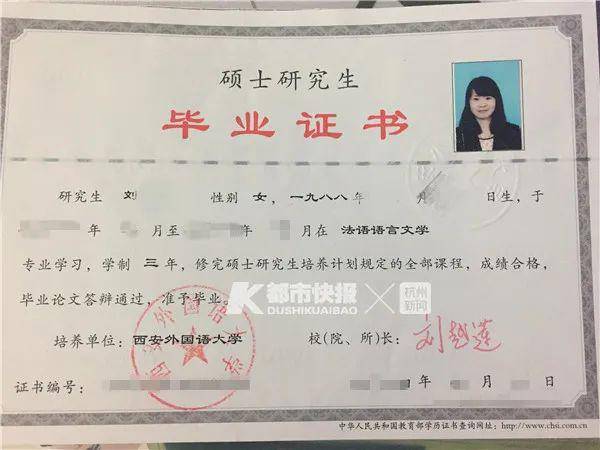 硕士研究生
毕业证书
研究生 刘 性别 女，一九八八年 月 日生，于
年 月至 年 月在 法语语言文学
专业学习，学制 三 年，修完硕士研究生培养计划规定的全部课程，成绩合格，
毕业论文答辩通过，准予毕业。
都市快报
DUSHIKUAIBAO
杭州
新闻
西安外国语大学
培养单位：西安外国语大学 校(院、所)长：刘越莲
证书编号： 年 月 日
中华人民共和国教育部学历证书查询网址：http://www.chsi.com.cn